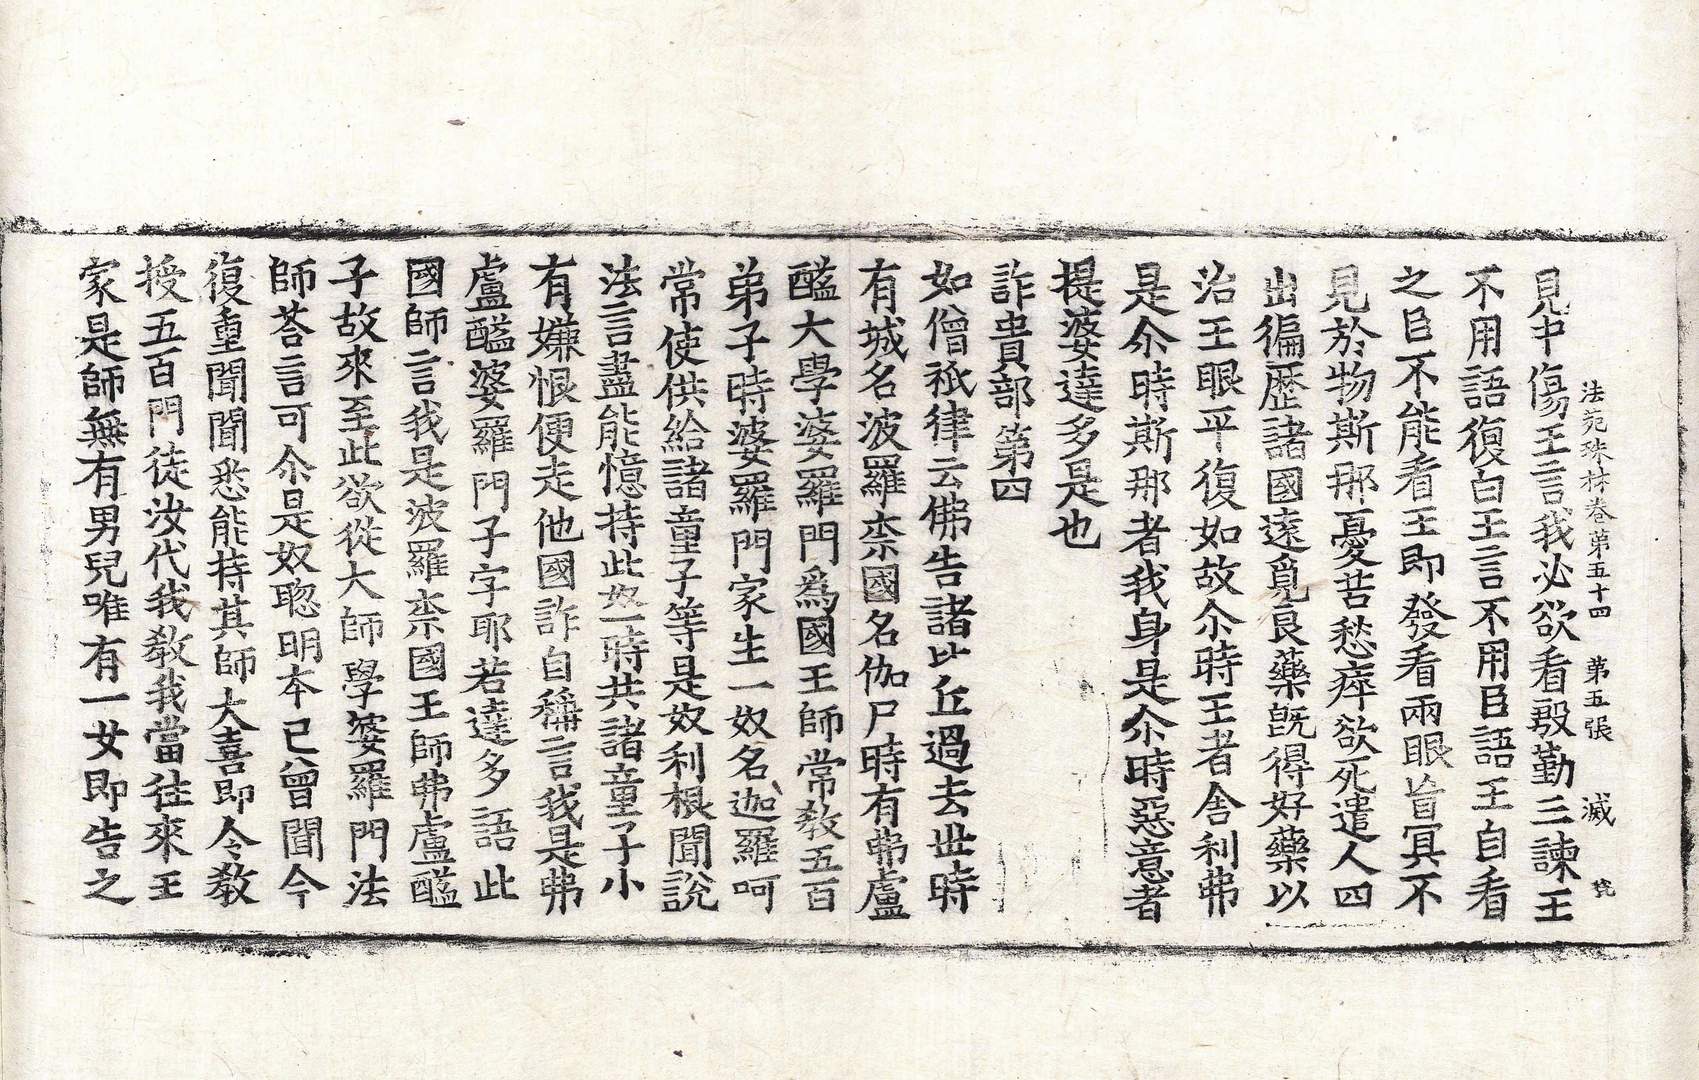 法苑珠林卷第五十四 第五張 滅
見中傷王言我必欲看殷勤三諫王
不用語復白王言不用臣語王自看
之臣不能看王即發看兩眼盲冥不
見於物斯那憂苦愁瘁欲死遣人四
出徧歷諸國遠覓良藥旣得好藥以
治王眼平復如故尒時王者舍利弗
是尒時斯那者我身是尒時惡意者
提婆達多是也
詐貴部第四
如僧祇律云佛告諸比丘過去世時
有城名波羅柰國名伽尸時有弗盧
醯大學婆羅門爲國王師常敎五百
弟子時婆羅門家生一奴名迦羅呵
常使供給諸童子等是奴利根聞說
法言盡能憶持此奴一時共諸童子小
有嫌恨便走他國詐自稱言我是弗
盧醯婆羅門子字耶若達多語此
國師言我是波羅柰國王師弗盧醯
子故來至此欲從大師學婆羅門法
師荅言可尒是奴聦明本已曾聞今
復重聞聞悉能持其師大喜即令敎
授五百門徒汝代我敎我當往來王
家是師無有男兒唯有一女即告之